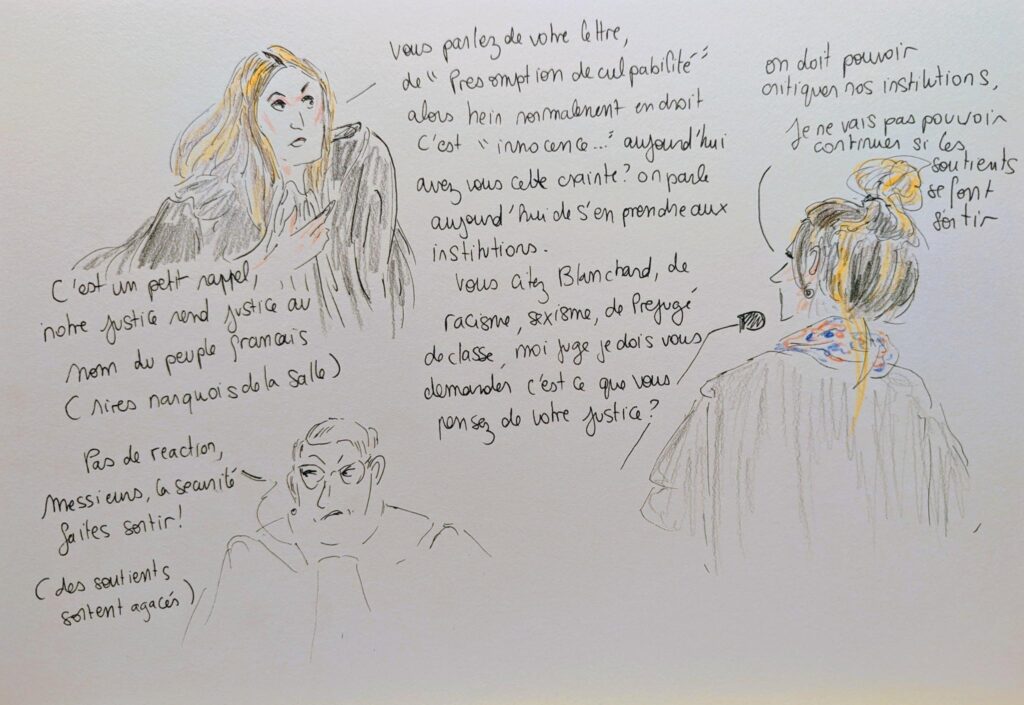 Vous parlez de votre lettre,
de "Presomption de culpabilité"
alors hein normalement en droit
C'est "innocence..." aujourd'hui
avez vous cette crainte? on parle
aujourd'hui de s'en prendre aux
institutions.
Vous citez Blanchard, de
racisme, sexisme, de Préjugé
de classe, moi juge je dois vous
demander c'est ce que vous
pensez de votre justice?
C'est un petit rappel,
notre justice rend justice au
nom du peuple francais
(rires narquois de la salle)
Pas de reaction,
messieurs, la securité
faites sortir!
(des soutients
sortent agacés)
on doit pouvoir
critiquer nos institutions,
Je ne vais pas pouvoir
continuer si les
soutients
se font
sortir